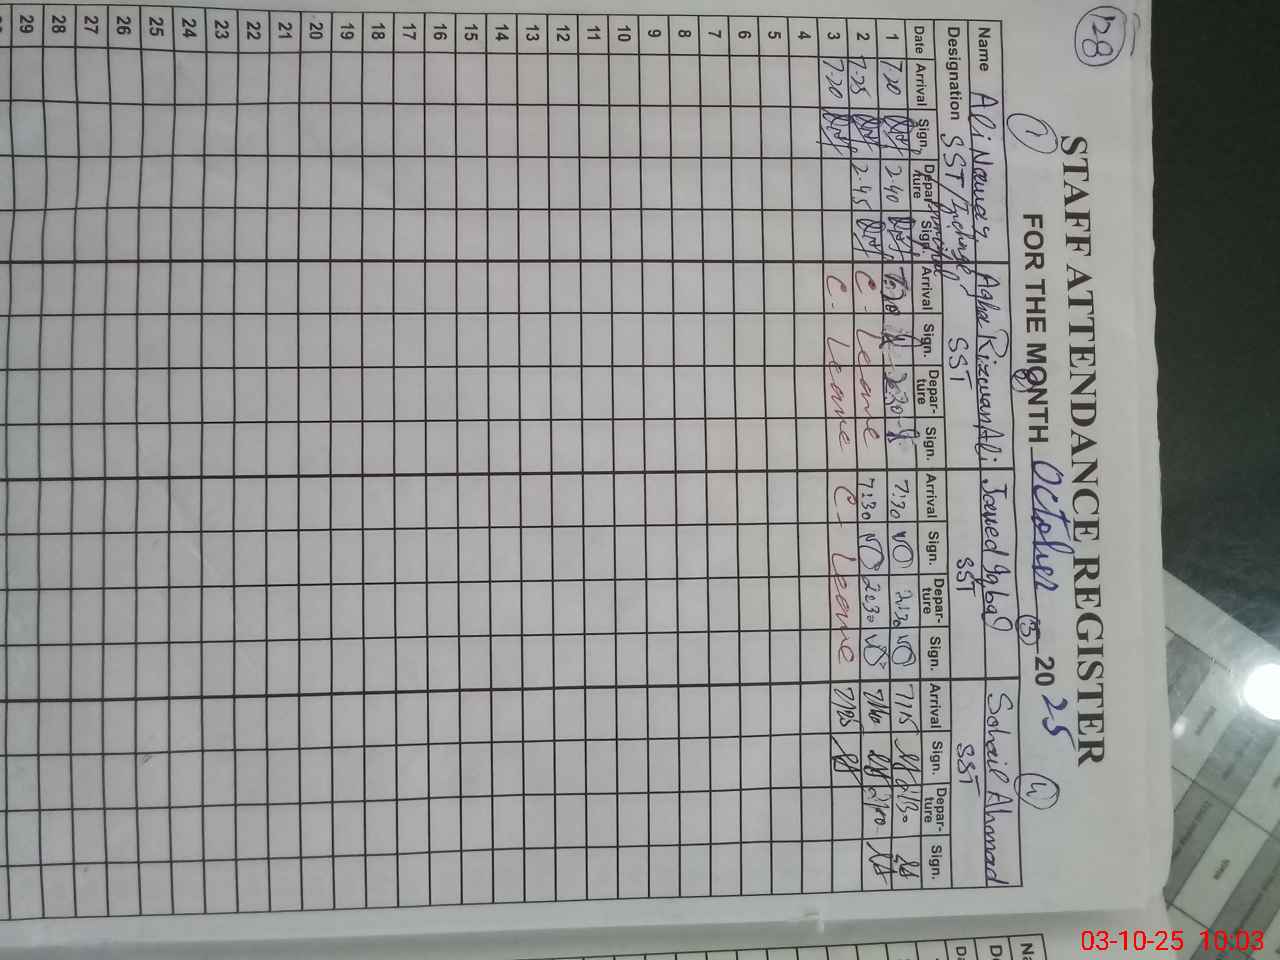 128
STAFF ATTENDANCE REGISTER
FOR THE MONTH October 2025
1 2 3 4
Name Ali Nawaz Agha Rizwan Ali Javed Iqbal Sohail Ahmad
Designation SST/Incharge Principal SST SST SST
Date Arrival Sign. Depar-ture Sign. Arrival Sign. Depar-ture Sign. Arrival Sign. Depar-ture Sign. Arrival Sign. Depar-ture Sign.
1 7.20 2.40 7:30 2:30 7:30 2:30 7/15 2/30
2 7.25 2.45 C- Leave 7:30 2:30
3 7.20 C- Leave C- Leave 7/25
4
5
6
7
8
9
10
11
12
13
14
15
16
17
18
19
20
21
22
23
24
25
26
27
28
29
03-10-25 10:03